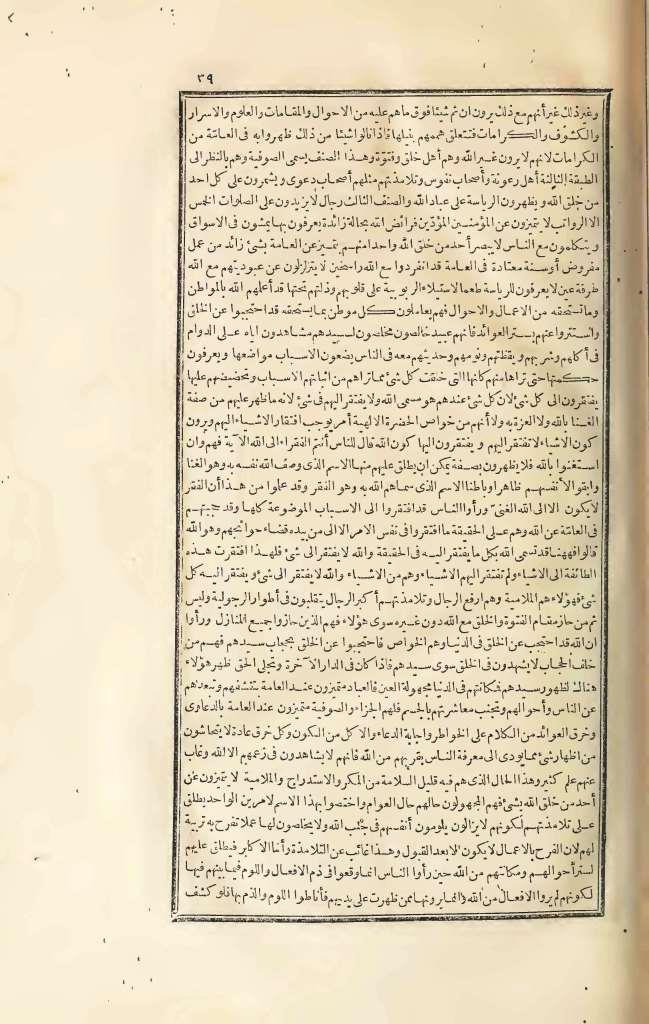 ٣٩
وغير ذلك غير أنهم مع ذلك يرون ان ثم شيئا فوق ما هم عليه من الاحوال والمقامات والعلوم والاسرار
والكشوف والكرامات فتتعلق هممهم بنيلها فاذا نالوا شيئا من ذلك ظهروا به فى العامّة من
الكرامات لانهم لا يرون غير الله وهم أهل خلق وفتوّة وهذا الصنف يسمى الصوفية وهم بالنظر الى
الطبقة الثالثة أهل رعونة وأصحاب نفوس وتلامذتهم مثلهم أصحاب دعوى ويشمرون على كل احد
من خلق الله ويظهرون الرياسة على عباد الله والصنف الثالث رجال لا يزيدون على الصلوات الخمس
الا الرواتب لا يتميزون عن المؤمنين المؤدّين فرائض الله بحالة زائدة يعرفون بها يمشون فى الاسواق
ويتكلمون مع الناس لا يبصر أحد من خلق الله واحدا منهم يتميز عن العامة بشئ زائد من عمل
مفروض أو سنة معتادة فى العامة قد انفردوا مع الله راسخين لا يتزلزلون عن عبوديتهم مع الله
طرفة عين لا يعرفون للرياسة طعما لاستيلاء الربوبية على قلوبهم وذلتهم تحتها قد أعلمهم الله بالمواطن
وما تستحقه من الاعمال والاحوال فهم يعاملون كل موطن بما يستحقه قد احتجبوا عن الخلق
واستتروا عنهم بستر العوائد فانهم عبيد خالصون مخلصون لسيدهم مشاهدون اياه على الدوام
فى أكلهم وشربهم ويقظتهم ونومهم وحديثهم معه فى الناس يضعون الاسباب مواضعها ويعرفون
حكمتها حتى تراهم منهم كانها التى خلقت كل شئ مما تراهم من اثباتهم الاسباب وتحضيضهم عليها
يفتقرون الى كل شئ لان كل شئ عندهم هو مسمى الله ولا يفتقر اليهم فى شئ لانه ما ظهر عليهم من صفة
الغنا بالله ولا العزة به ولا أنهم من خواص الحضرة الالهية أمر يوجب افتقار الاشياء اليهم ويرون
كون الاشياء لا تفتقر اليهم ويفتقرون اليها كون الله قال للناس أنتم الفقراء الى الله الآية فهم وان
استغنوا بالله فلا يظهرون بصفة يمكن ان يطلق عليهم منها الاسم الذى وصف الله نفسه به وهو الغنا
وابقوا لأنفسهم ظاهرا وباطنا الاسم الذى سماهم الله به وهو الفقر وقد علموا من هذا أن الفقر
لا يكون الا الى الله الغنىّ ورأوا الناس قد افتقروا الى الاسباب الموضوعة كلها وقد حجبتهم
فى العامّة عن الله وهم على الحقيقة ما افتقروا فى نفس الامر الا الى من بيده قضاء حوائجهم وهو الله
قالوا فههنا قد تسمى الله بكل ما يفتقر اليه فى الحقيقة والله لا يفتقر الى شئ فلهذا افتقرت هذه
الطائفة الى الاشياء ولم تفتقر اليهم الاشياء وهم من الاشياء والله لا يفتقر الى شئ ويفتقر اليه كل
شئ فهؤلاء هم الملامية وهم ارفع الرجال وتلامذتهم أكبر الرجال يتقلبون فى أطوار الرجولية وليس
ثم من حاز مقام الفتوة والخلق مع الله دون غيره سوى هؤلاء فهم الذين حازوا جميع المنازل ورأوا
ان الله قد احتجب عن الخلق فى الدنيا وهم الخواص فاحتجبوا عن الخلق بحجاب سيدهم فهم من
خلف الحجاب لا يشهدون فى الخلق سوى سيدهم فاذا كان فى الدار الآخرة وتجلى الحق ظهر هؤلاء
هناك لظهور سيدهم فمكانتهم فى الدنيا مجهولة العين فالعباد متميزون عند العامة بتقشفهم وتبعدهم
عن الناس وأحوالهم وتجنب معاشرتهم بالجسم فلهم الجزاء والصوفية متميزون عند العامة بالدعاوى
وخرق العوائد من الكلام على الخواطر واجابة الدعاء والاكل من الكون وكل خرق عادة لا يتحاشون
من اظهار شئ مما يودى الى معرفة الناس بقربهم من الله فانهم لا يشاهدون فى زعمهم الا الله وغاب
عنهم علم كثير وهذا الحال الذى هم فيه قليل السلامة من المكر والاستدراج والملامية لا يتميزون عن
أحد من خلق الله بشئ فهم المجهولون حالهم حال العوام واختصوا بهذا الاسم لامرين الواحد يطلق
على تلامذتهم لكونهم لا يزالون يلومون أنفسهم فى جنب الله ولا يخلصون لها عملا تفرح به تربية
لهم لان الفرح بالاعمال لا يكون الا بعد القبول وهذا غائب عن التلامذة وأما الاكابر فيطلق عليهم
لستر أحوالهم ومكانتهم من الله حين رأوا الناس انما وقعوا فى ذم الافعال واللوم فيما بينهم فيها
لكونهم لم يروا الافعال من الله وانما يرونها ممن ظهرت على يديهم فأناطوا اللوم والذم بها فلو كشف